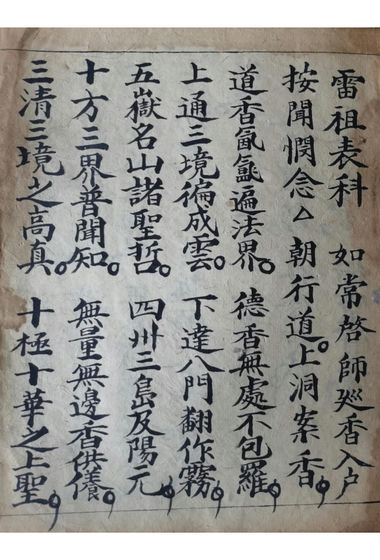 雷祖表科　如常啓師廵香入户
按聞憫念△　朝行道。上洞案香。
道香氤氲遍法界。德香無處不包羅。
上通三境徧成雲。下達八門翻作霧。
五嶽名山諸聖哲。四州三島及陽元。
十方三界普聞知。無量無邊香供養。
三清三境之高真。十極十華之上聖。